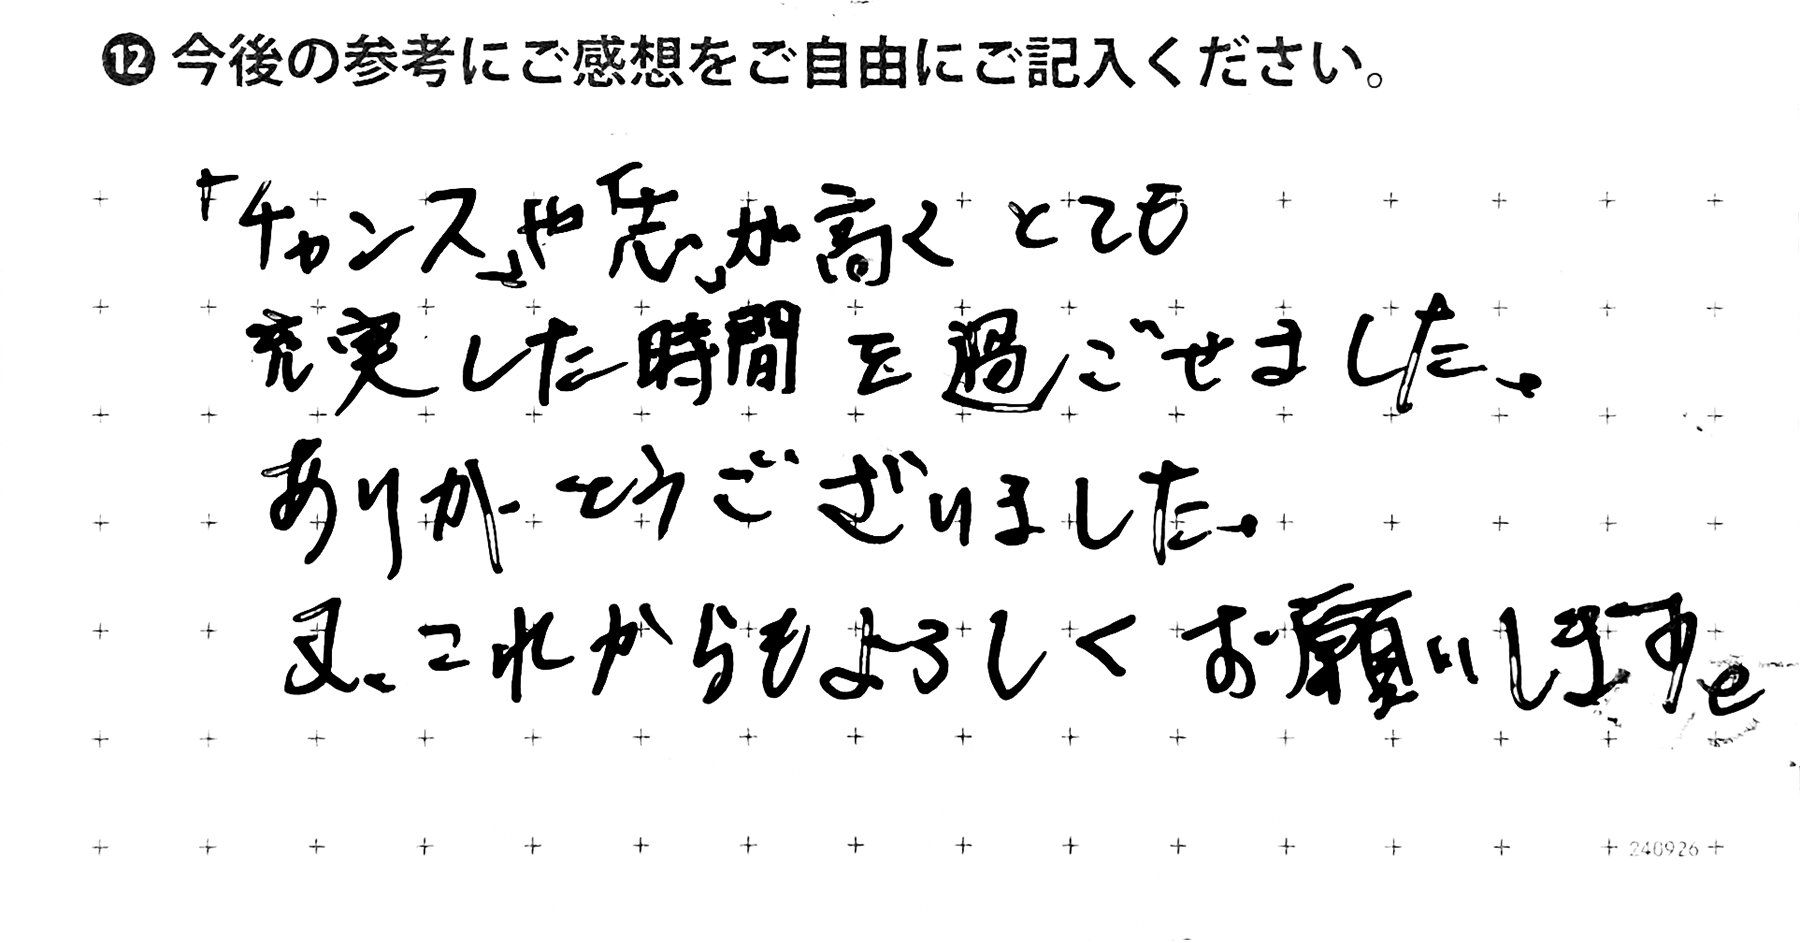 ⓬今後の参考にご感想をご自由にご記入ください。
「チカンス」や「志」が高くとても
充実した時間を過ごせました。
ありがとうございました。
又、これからもよろしくお願いします。
240926